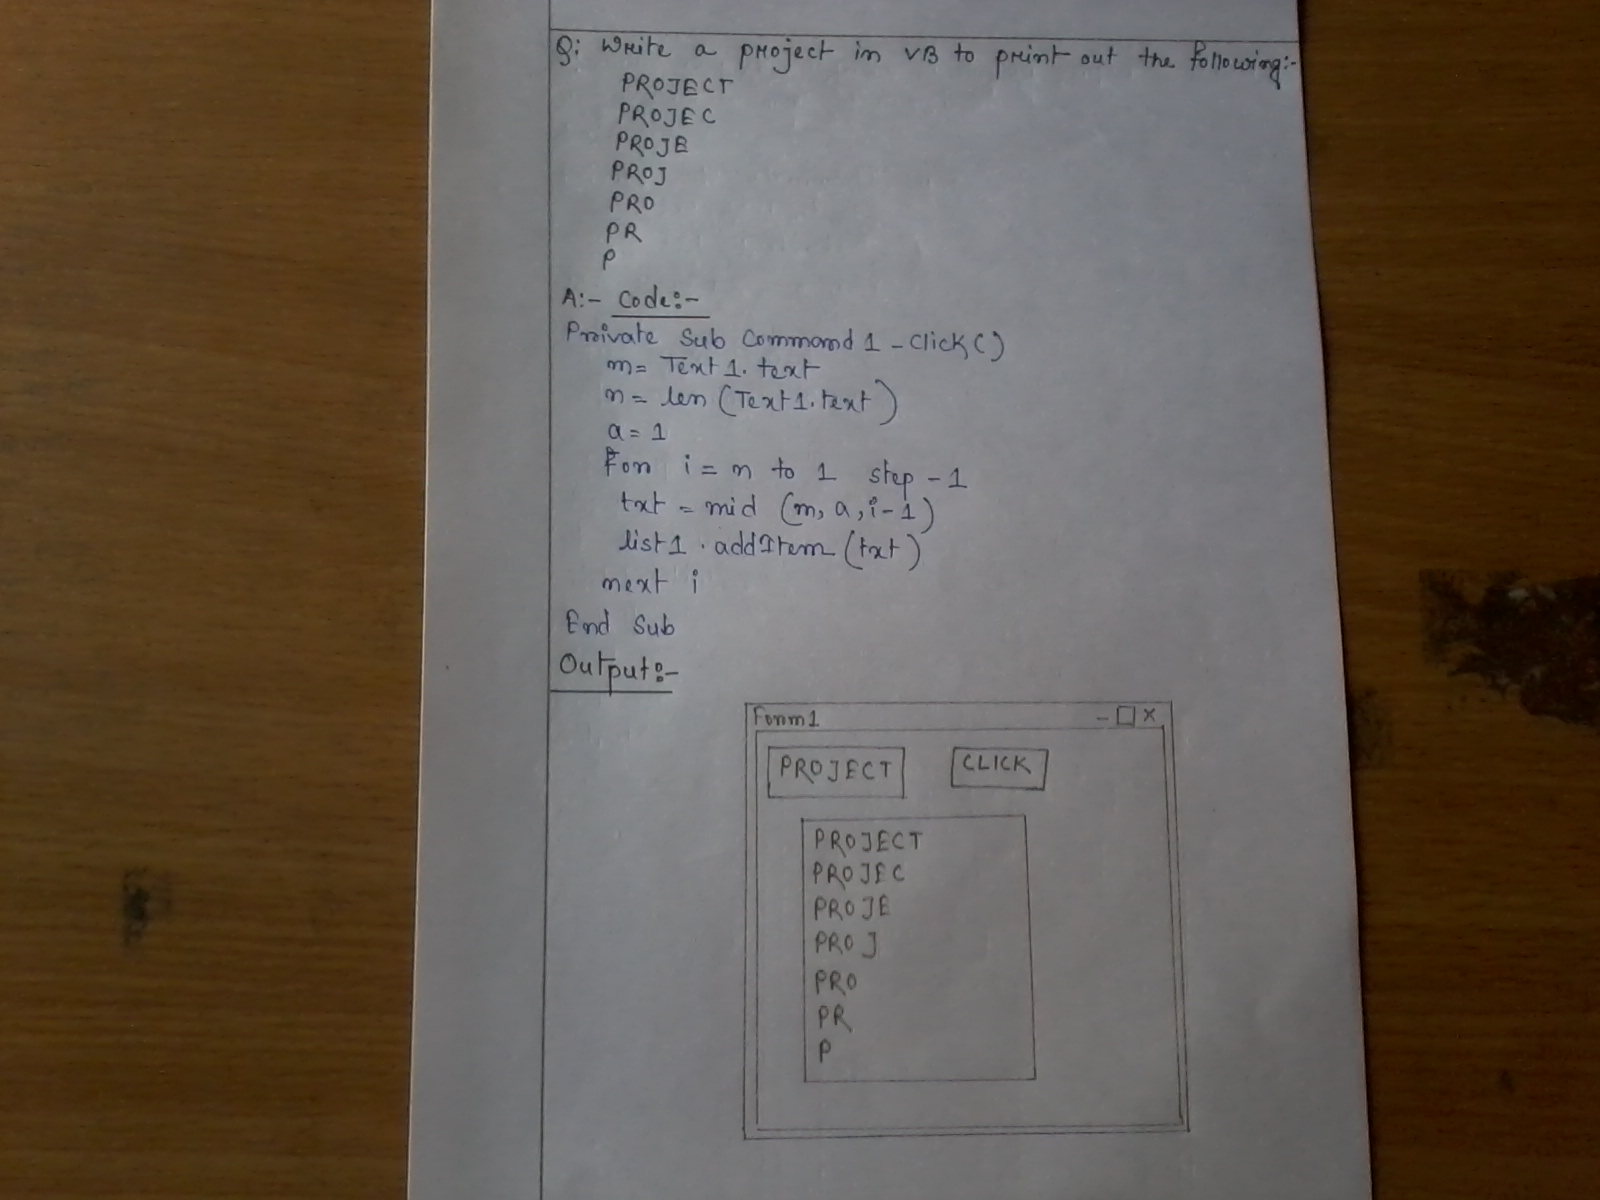 Q: Write a project in VB to print out the following:-
PROJECT
PROJEC
PROJE
PROJ
PRO
PR
P
A:- Code:-
Private Sub Command 1 - Click ( )
m = Text 1. text
n = len (Text 1. text)
a = 1
For i = n to 1 step - 1
txt = mid (m, a, i - 1)
list 1 . addItem (txt)
next i
End Sub
Output:-
Form 1 - □ X
PROJECT CLICK
PROJECT
PROJEC
PROJE
PROJ
PRO
PR
P